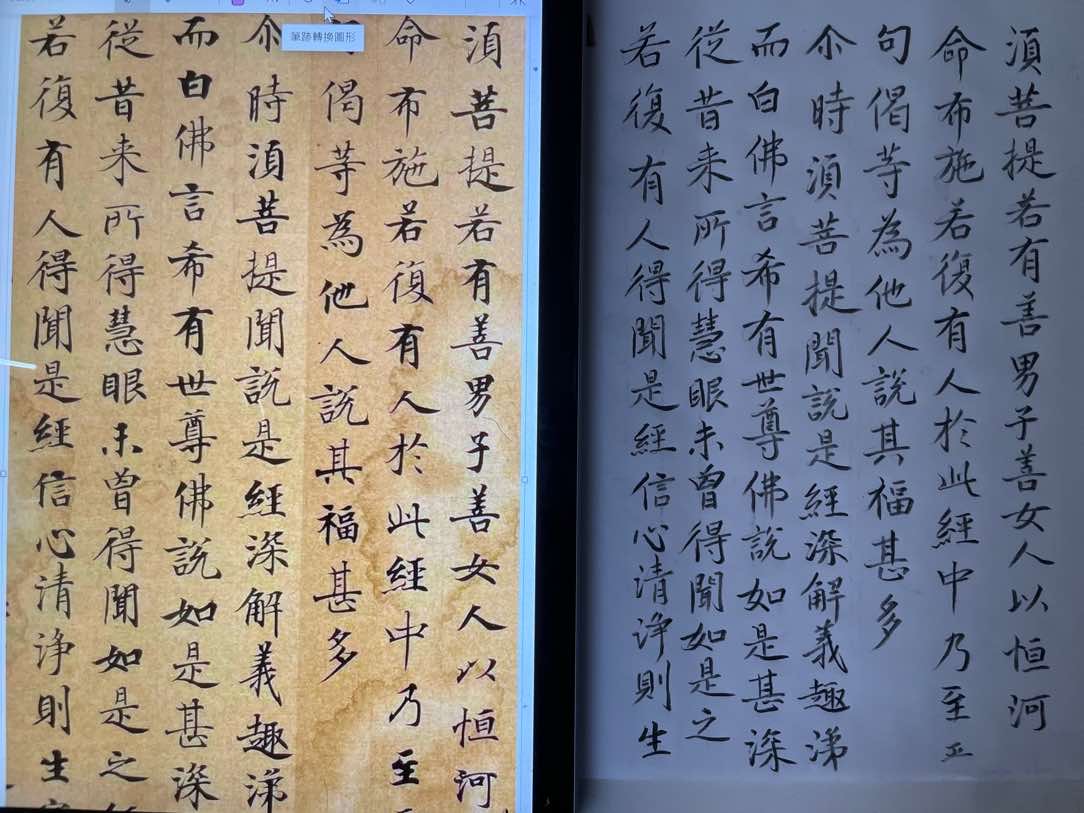 筆跡轉換圖形
湏菩提若有善男子善女人以恒河
命布施若復有人於此經中乃至
偈等為他人說其福甚多
尒時湏菩提聞說是經深解義趣涕
而白佛言希有世尊佛說如是甚深
從昔来所得慧眼未曾得聞如是之
若復有人得聞是經信心清淨則生
湏菩提若有善男子善女人以恒河
命布施若復有人於此經中乃至
句偈等為他人說其福甚多
尒時湏菩提聞說是經深解義趣涕
而白佛言希有世尊佛說如是甚深
從昔来所得慧眼未曾得聞如是之
若復有人得聞是經信心清淨則生